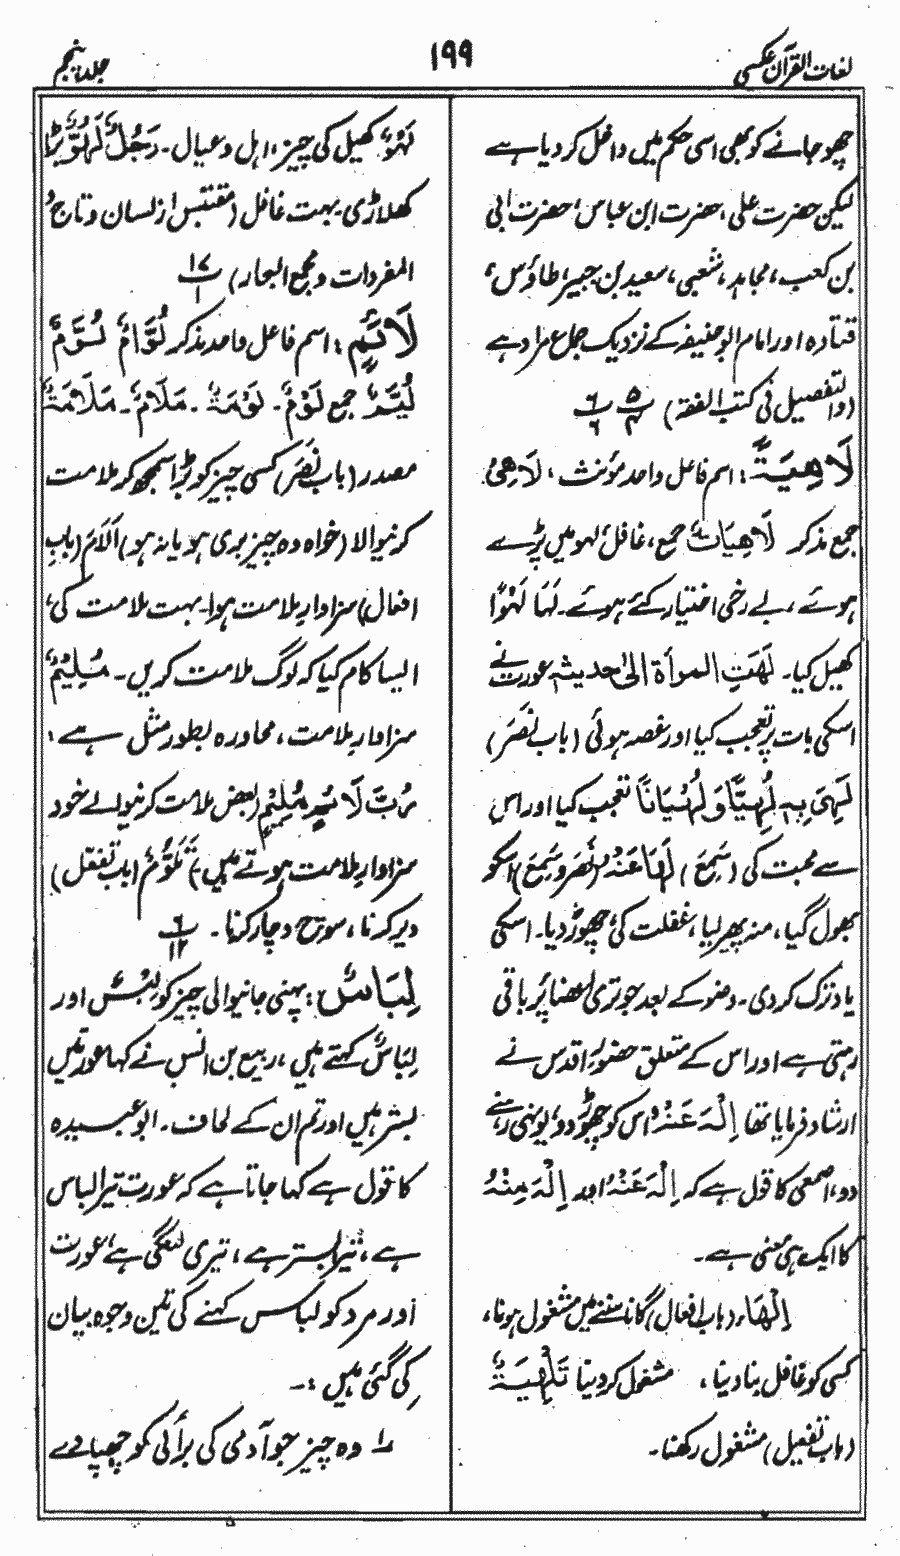 لغات القرآن عکسی
۱۹۹
جلد پنجم
چھو جانے کو بھی اسی حکم میں داخل کر دیا ہے
لیکن حضرت علی، حضرت ابن عباس، حضرت ابی
بن کعب، مجاہد، شعبی، سعید بن جبیر، طاؤس،
قتادہ اور امام ابو حنیفہ کے نزدیک جماع مراد ہے
(والتفصیل فی کتب الفقہ) ۵/۴ ۶/۶
لَاهِيَةً: اسم فاعل واحد مؤنث، لَاهِیٌ
جمع مذکر لَاهِيَاتٌ جمع، غافل، لہو میں پڑے
ہوئے، بے رخی اختیار کئے ہوئے۔ لَهَا لَهْوًا
کھیل کیا۔ لَهَتِ المرأة الیٰ حدیثہ عورت نے
اسکی بات پر تعجب کیا اور غصہ ہوئی (باب نَصَرَ)
لَهِیَ بِہٖ لُهِيًّا وَ لُهْيَانًا تعجب کیا اور اس
سے محبت کی (سَمِعَ) لَهَا عَنْہُ (نَصَرَ و سَمِعَ) اسکو
بھول گیا، منہ پھیر لیا، غفلت کی، چھوڑ دیا۔ اسکی
یاد ترک کر دی۔ وضو کے بعد جو تری اعضا پر باقی
رہتی ہے اور اس کے متعلق حضورِ اقدس نے
ارشاد فرمایا تھا اِلْهَ عَنْهُ اس کو چھوڑ دو، یونہی رہنے
دو، اصمعی کا قول ہے کہ اِلْهَ عَنْهُ اور اِلْهَ مِنْهُ
کا ایک ہی معنی ہے۔
اِلْهَاء (باب افعال) گانا سننے میں مشغول ہونا،
کسی کو غافل بنا دینا، مشغول کر دینا تَلْهِيَةٌ
(باب تفعیل) مشغول رکھنا۔
لَهْوٌ کھیل کی چیز، اہل و عیال۔ رَجُلٌ لَهُوٌّ بڑا
کھلاڑی۔ بہت غافل (مقتبس از لسان و تاج و
المفردات و مجمع البحار) ۱۷/۱
لَائِمٍ: اسم فاعل واحد مذکر لُوَّامٌ لُوَّمٌ
لُيَّمٌ جمع لَوْمٌ۔ لَوْمَةٌ۔ مَلَامٌ۔ مَلَامَةٌ
مصدر (باب نَصَرَ) کسی چیز کو بُرا سمجھ کر ملامت
کرنیوالا (خواہ وہ چیز بری ہو یا نہ ہو) اَلَامَ (بابِ
افعال) سزاوارِ ملامت ہوا۔ بہت ملامت کی،
ایسا کام کیا کہ لوگ ملامت کریں۔ مُلِيْمٌ
سزاوارِ ملامت، محاورہ بطور مثل ہے:
رُبَّ لَائِمٍ مُلِيْمٍ (بعض ملامت کرنیوالے خود
سزاوارِ ملامت ہوتے ہیں) تَلَوُّمٌ (باب تفعّل)
دیر کرنا، سوچ و چار کرنا۔ ۶/۱۲
لِبَاسٌ: پہنی جانیوالی چیز کو لِبْسٌ اور
لِبَاسٌ کہتے ہیں، ربیع بن انس نے کہا عورتیں
بستر ہیں اور تم ان کے لحاف۔ ابو عبیدہ
کا قول ہے کہا جاتا ہے کہ عورت تیرا لباس
ہے، تیرا بستر ہے، تیری لنگی ہے، عورت
اور مرد کو لباس کہنے کی تین وجوہ بیان
کی گئی ہیں:۔
۱؎ وہ چیز جو آدمی کی برائی کو چھپا دے